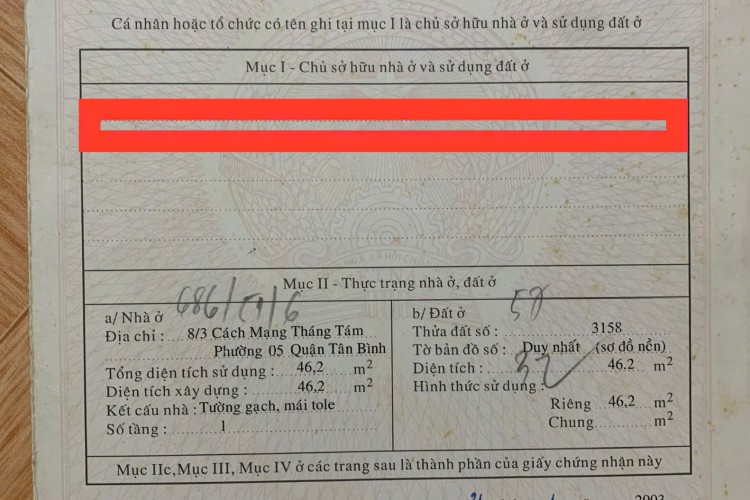 Cá nhân hoặc tổ chức có tên ghi tại mục I là chủ sở hữu nhà ở và sử dụng đất ở
Mục I - Chủ sở hữu nhà ở và sử dụng đất ở
Mục II - Thực trạng nhà ở, đất ở
a/ Nhà ở
Địa chỉ : 8/3 Cách Mạng Tháng Tám
Phường 05 Quận Tân Bình
Tổng diện tích sử dụng : 46,2 m²
Diện tích xây dựng : 46,2 m²
Kết cấu nhà : Tường gạch, mái tole
Số tầng : 1
b/ Đất ở
58
Thửa đất số : 3158
Tờ bản đồ số : Duy nhất (sơ đồ nền)
Diện tích : 46,2 m²
Hình thức sử dụng :
Riêng 46,2 m²
Chung m²
Mục IIc, Mục III, Mục IV ở các trang sau là thành phần của giấy chứng nhận này
2003